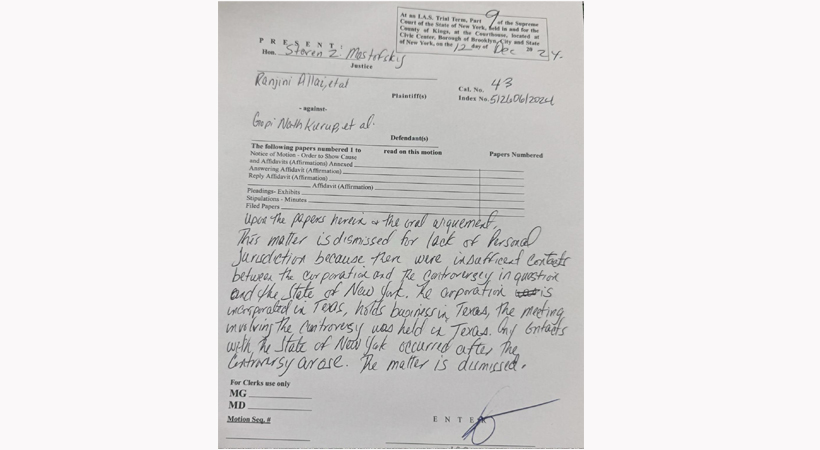 At an I.A.S. Trial Term, Part 9 of the Supreme
Court of the State of New York, held in and for the
County of Kings, at the Courthouse, located at
Civic Center, Borough of Brooklyn, City and State
of New York, on the 12 day of Dec 2024.
P R E S E N T :
Hon. Steven Z. Mostofsky
Justice
Ranjini Allai, et al
Plaintiff(s)
Cal. No. 43
Index No. 512606/2024
- against-
Gopi Nath Kurup, et al.
Defendant(s)
The following papers numbered 1 to read on this motion
Papers Numbered
Notice of Motion - Order to Show Cause
and Affidavits (Affirmations) Annexed
Answering Affidavit (Affirmation)
Reply Affidavit (Affirmation)
Affidavit (Affirmation)
Pleadings- Exhibits
Stipulations - Minutes
Filed Papers
Upon the papers herein + the oral arguement,
This matter is dismissed for lack of Personal
Jurisdiction because there were insufficent contacts
between the corporation and the controversey in question
and the State of New York. The corporation is
incorporated in Texas, holds business in Texas, the meeting
involving the controversy was held in Texas. Any contacts
with the State of New York occurred after the
controversy arose. The matter is dismissed.
For Clerks use only
MG
MD
Motion Seq. #
E N T E R